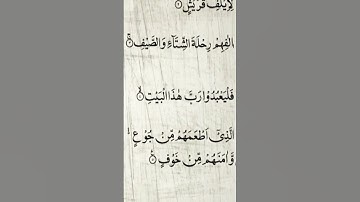 لِاِيْلٰفِ قُرَيْشٍۙ
اٖلٰفِهِمْ رِحْلَةَ الشِّتَآءِ وَالصَّيْفِۚ
فَلْيَعْبُدُوْا رَبَّ هٰذَا الْبَيْتِۙ
الَّذِيْٓ اَطْعَمَهُمْ مِّنْ جُوْعٍ
وَّاٰمَنَهُمْ مِّنْ خَوْفٍ